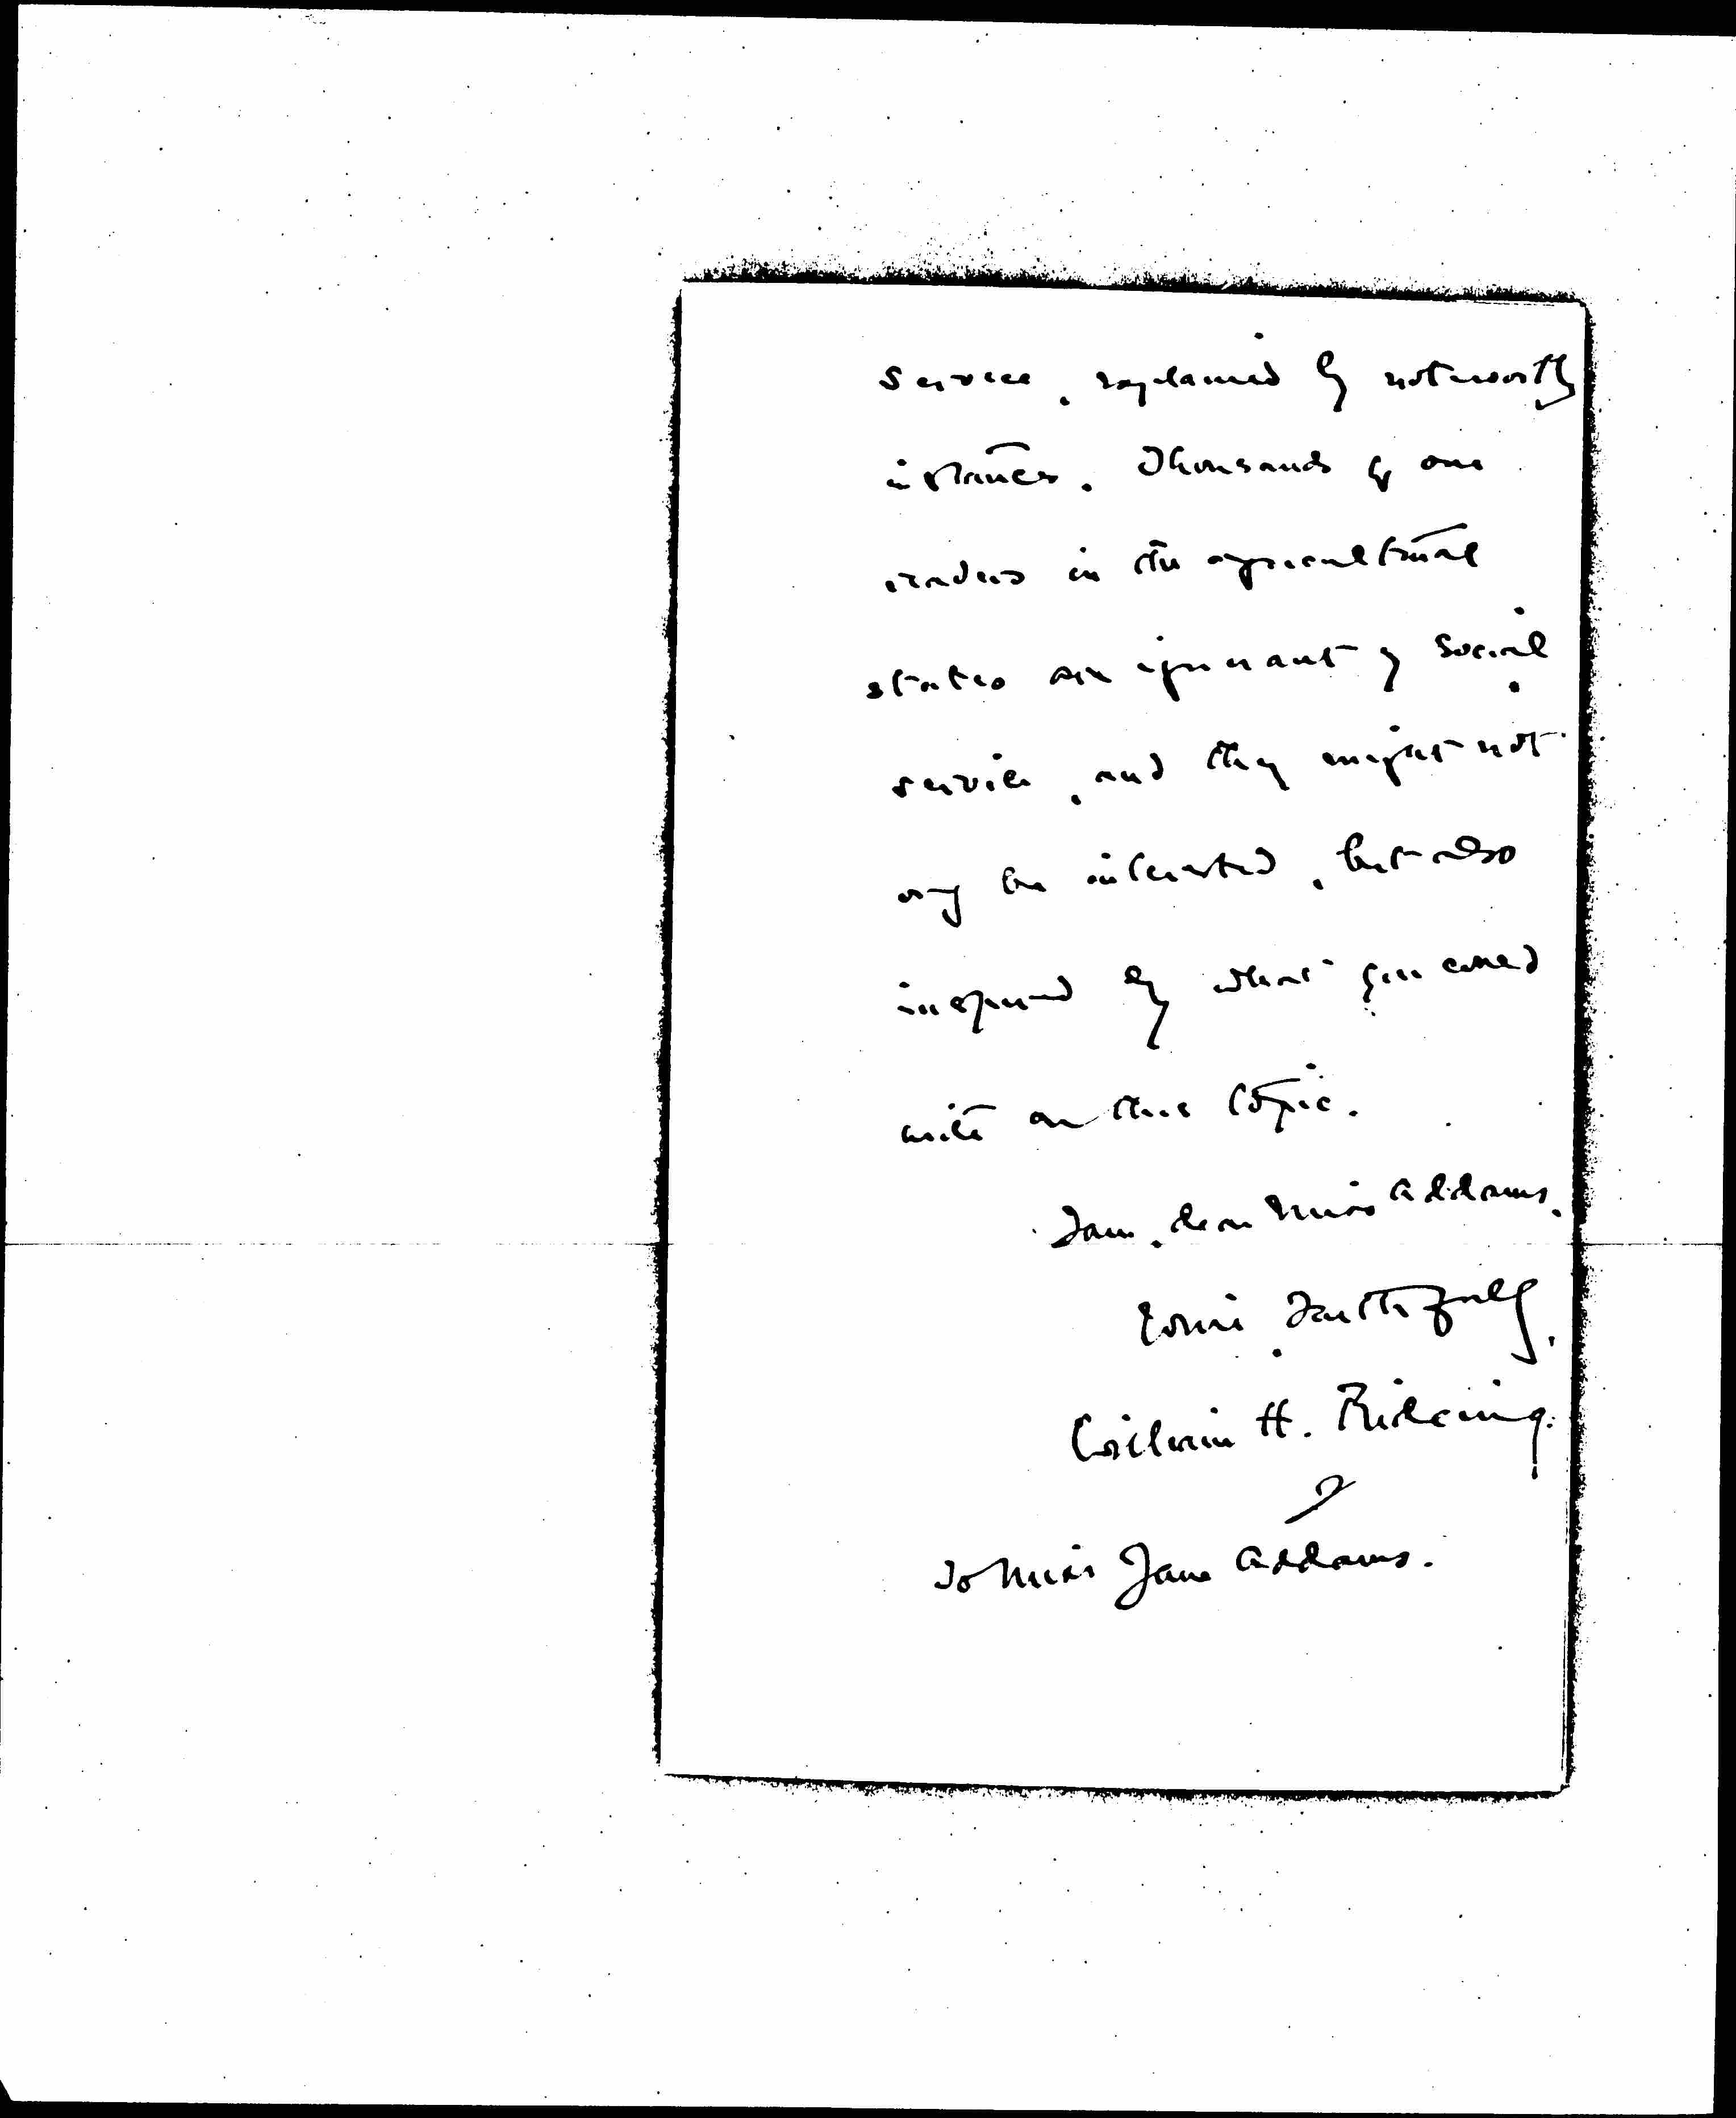 service, explained by noteworthy
instances. Thousands of our
readers in the agricultural
states are ignorant of social
service, and they might not
only be interested, but also
inspired by what you could
write on this topic.
I am, dear Miss Addams,
Yours faithfully,
William H. Rideing.
To Miss Jane Addams.